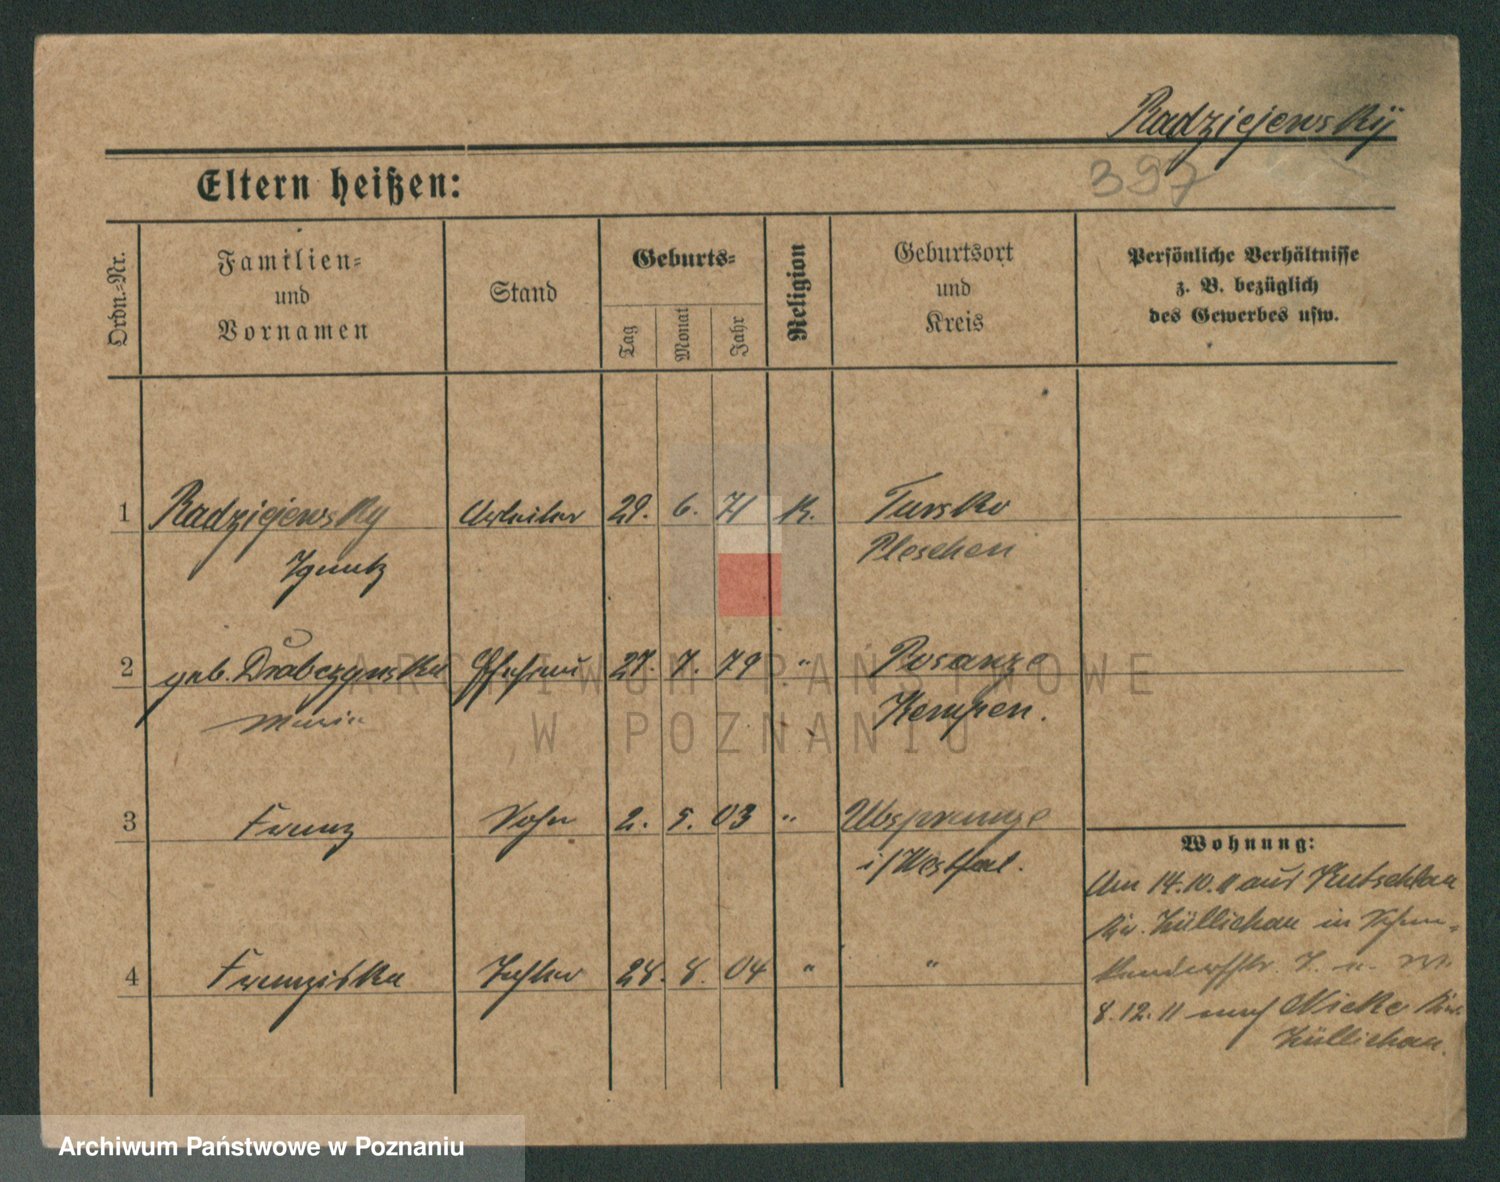 Radziejewsky
397
Eltern heißen:
Ordn.-Nr.
Familien-
und
Vornamen
Stand
Geburts-
Tag
Monat
Jahr
Religion
Geburtsort
und
Kreis
Persönliche Verhältnisse
z. B. bezüglich
des Gewerbes usw.
1 Radziejewsky Arbeiter 29. 6. 71 K. Tursko
Ignatz Pleschen
2 geb. Ehefrau 27. 7. 79 "
Maria Kempen.
3 Franz Sohn 2. 5. 03 "
i/Westfal.
4 Franziska Tochter 28. 8. 04 " "
Wohnung:
Am 14.10.11 aus Kutschlau
Kr. Züllichau in
T. u. M.
8.12.11 nach Nicke Kr.
Züllichau.
ARCHIWUM PAŃSTWOWE
W POZNANIU
Archiwum Państwowe w Poznaniu